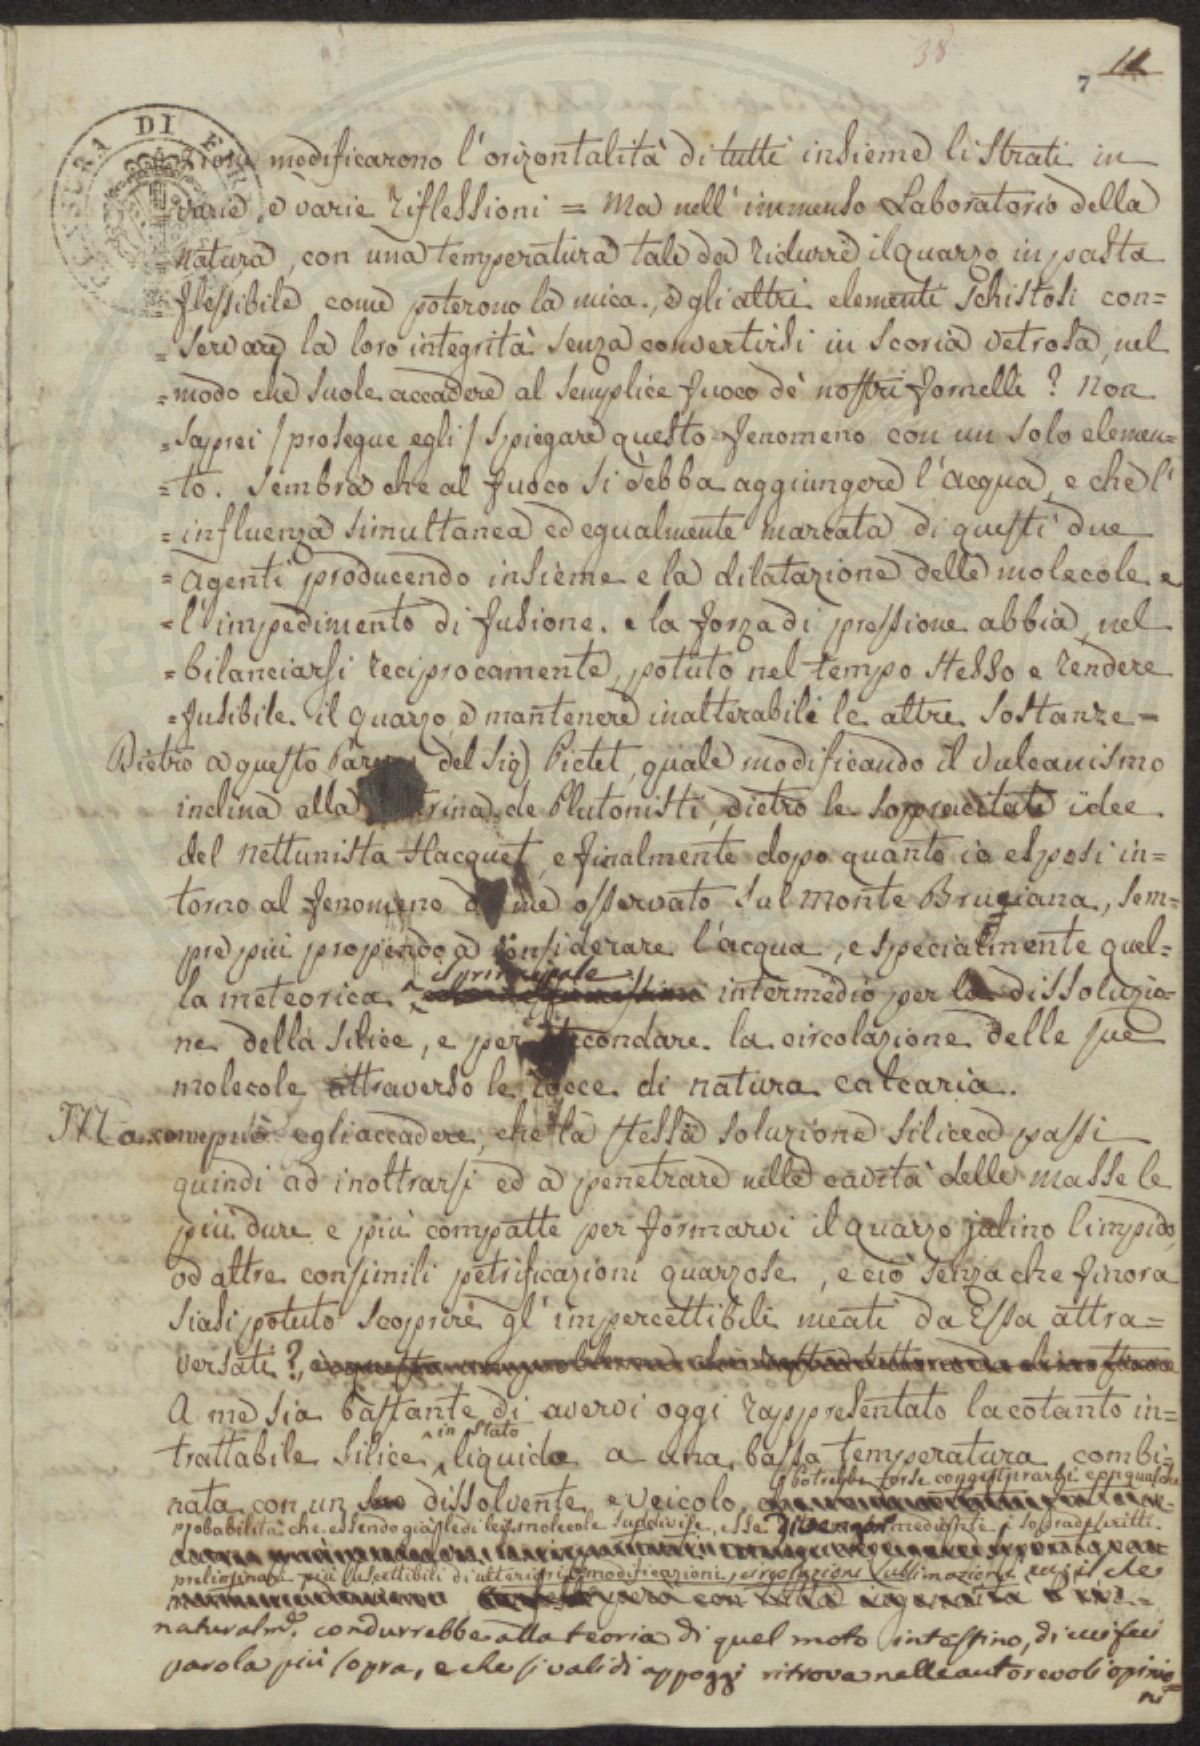 38
7 11
DI
=zione modificarono l'orizontalità di tutti insieme li strati in
=varie, e varie riflessioni = Ma nell'immenso Laboratorio della
=natura, con una temperatura tale da ridurre il quarzo in pasta
flessibile come poterono la mica, e gli altri elementi schistosi con=
=servare la loro integrità senza convertirsi in scoria vetrosa, nel
=modo che suole accadere al semplice fuoco de' nostri fornelli? Non
=saprei / prosegue egli / spiegare questo fenomeno con un solo elemen=
=to. Sembra che al fuoco si debba aggiungere l'acqua, e che l'
=influenza simultanea ed egualmente marcata di questi due
=agenti producendo insieme e la dilatazione delle molecole e
=l'impedimento di fusione. e la forza di pressione abbia, nel
=bilanciarsi reciprocamente, potuto nel tempo stesso e rendere
=fusibile il quarzo, e mantenere inalterabili le altre sostanze=
Dietro a questo del Sig) Pictet, quale modificando il vulcanismo
inclina alla trina de Plutonisti, dietro le sopracitate idee
del nettunista Hacquet, e finalmente dopo quanto io esposi in=
torno al fenomeno da me osservato sul Monte Brugiana, sem=
pre più propendo a considerare l'acqua, e specialmente quel=
la meteorica principale intermedio per la dissoluzio=
ne della silice, e per secondare la circolazione delle sue
molecole attraverso le rocce di natura calcaria.
Ma come può egli accadere, che la stessa soluzione silicea passi
quindi ad inoltrarsi ed a penetrare nelle cavità delle masse le
più dure e più compatte per formarvi il quarzo jalino limpido,
od altre consimili petrificazioni quarzose, e ciò senza che finora
siasi potuto scoprire gl'impercettibili meati da Essa attra=
versati?
A me sia bastante di avervi oggi rappresentato la cotanto in=
in stato
trattabile silice, liquida a una bassa temperatura combi=
Potrebbe forse congetturarsi con qualche
nata con un dissolvente e veicolo,
probabilità che essendo già le di lei molecole suddivise, esse divengano mediante i sopradescritti
preliminari più suscettibili di ulteriori modificazioni, circolazioni, sublimazioni, il che
naturalm.e condurrebbe alla teoria di quel moto intestino, di cui feci
parola più sopra, e che sì validi appoggi ritrova nelle autorevoli opinio=
ni